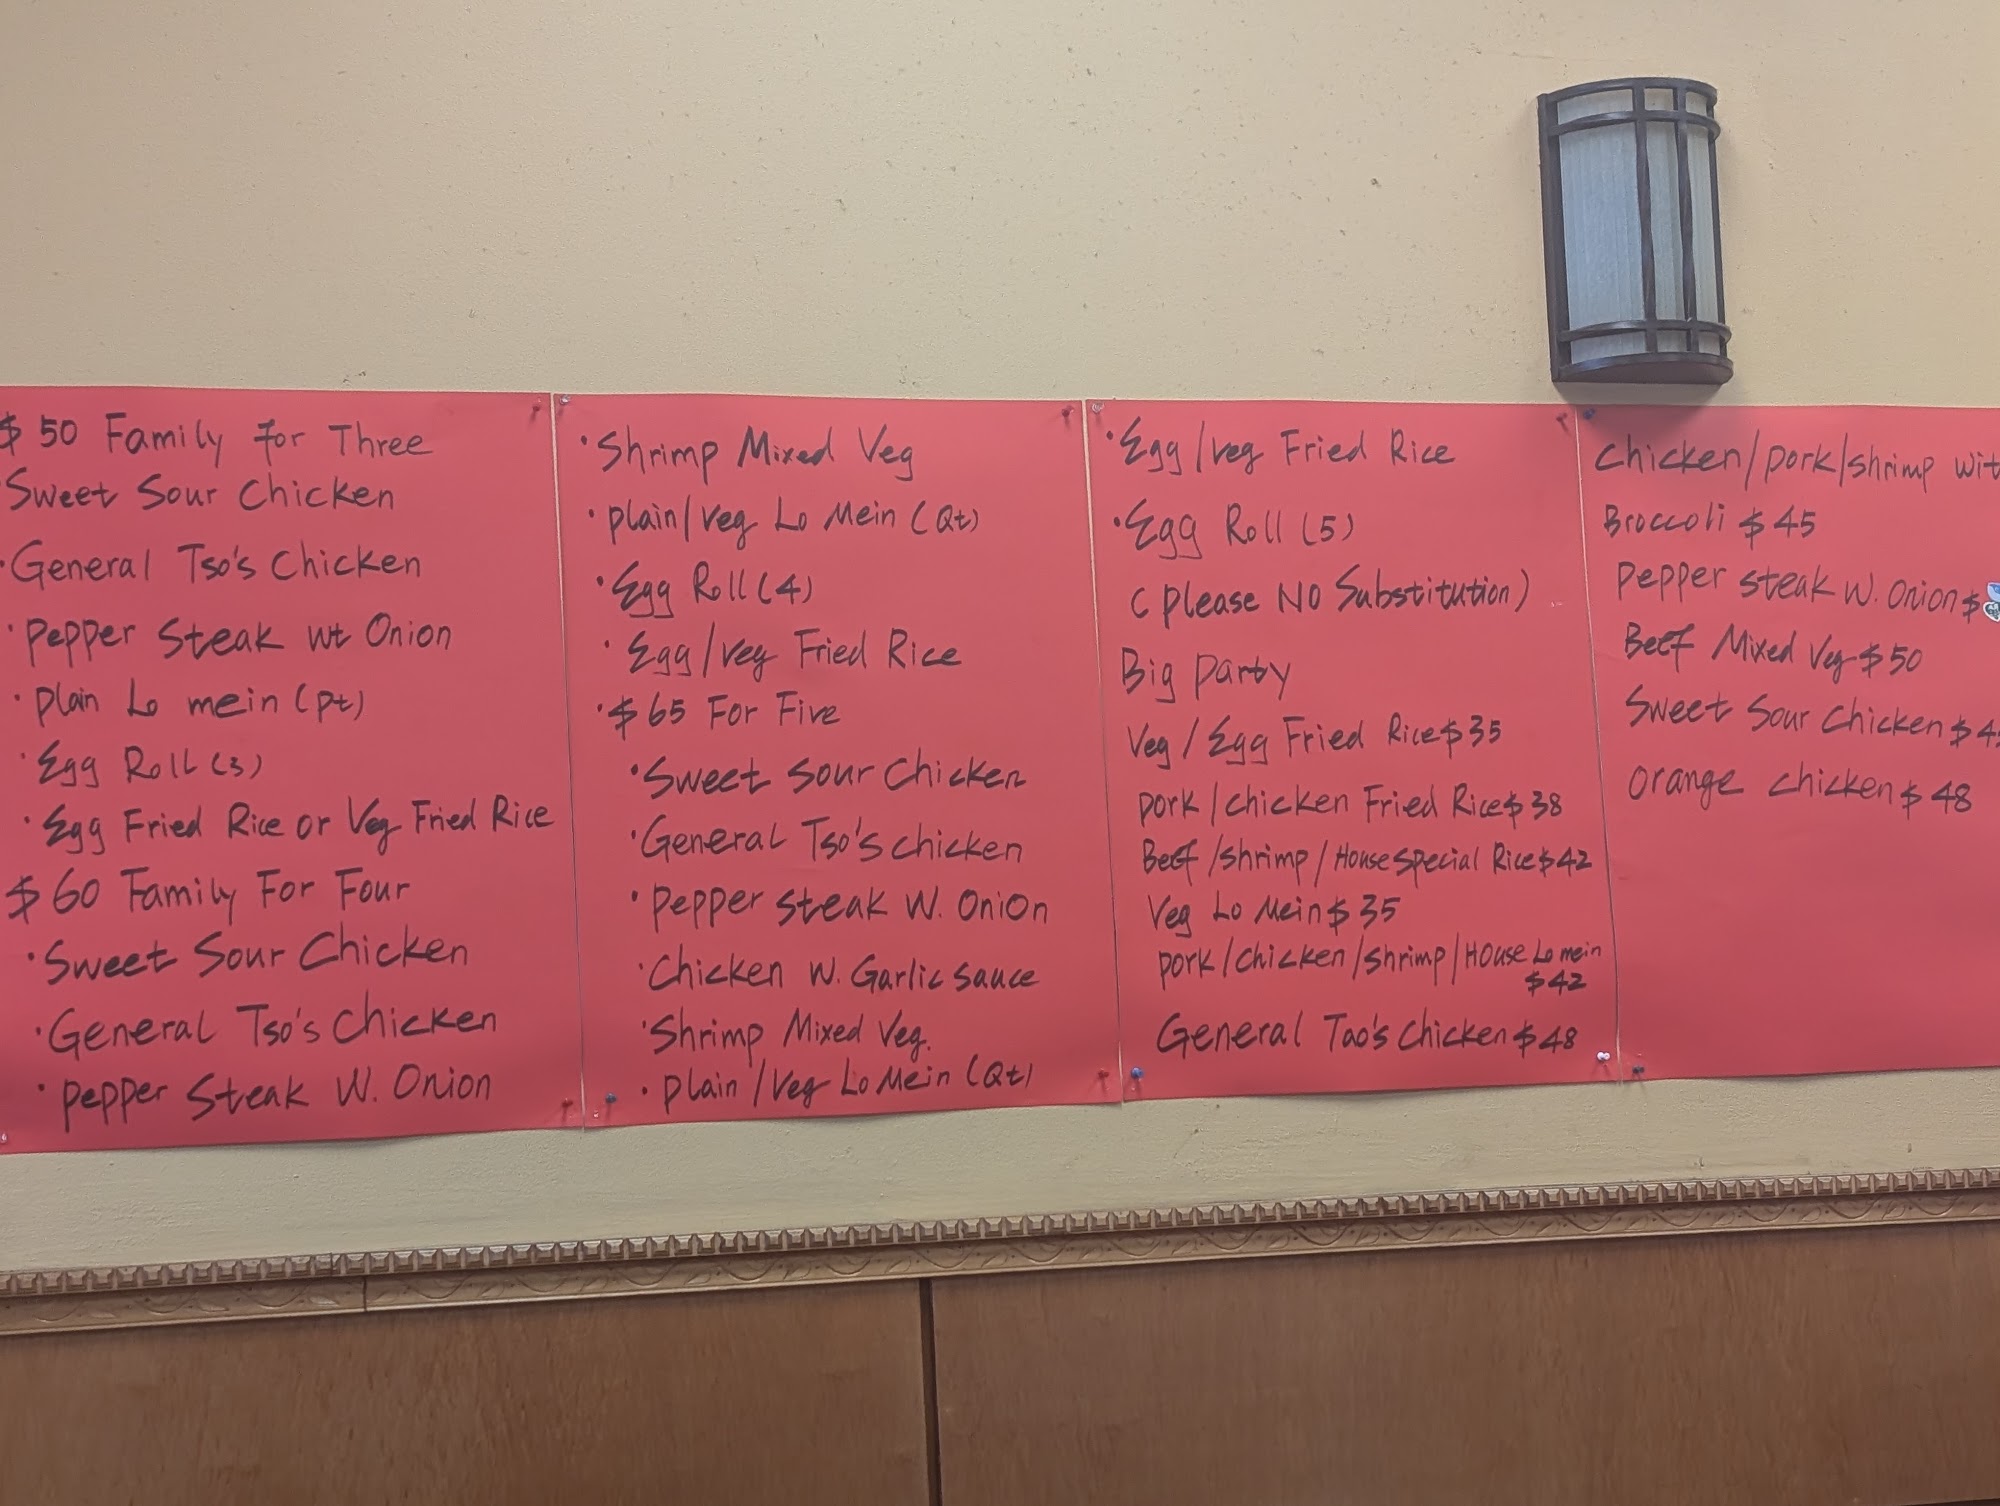 $50 Family for Three
·Sweet Sour Chicken
·General Tso's Chicken
·Pepper Steak wt Onion
·Plain Lo mein (pt)
·Egg Roll (3)
·Egg Fried Rice or Veg Fried Rice
$60 Family For Four
·Sweet Sour Chicken
·General Tso's Chicken
·Pepper Steak W. Onion
·Shrimp Mixed Veg
·Plain/Veg Lo Mein (Qt)
·Egg Roll (4)
·Egg/Veg Fried Rice
·$65 For Five
·Sweet Sour Chicken
·General Tso's Chicken
·Pepper Steak W. Onion
·Chicken W. Garlic Sauce
·Shrimp Mixed Veg.
·Plain/Veg Lo Mein (Qt)
·Egg/Veg Fried Rice
·Egg Roll (5)
(Please NO Substitution)
Big Party
Veg/Egg Fried Rice $35
Pork/Chicken Fried Rice $38
Beef/Shrimp/House Special Rice $42
Veg Lo Mein $35
Pork/Chicken/Shrimp/House Lo mein
$42
General Tao's Chicken $48
Chicken/Pork/Shrimp
Broccoli $45
Pepper Steak W. Onion $
Beef Mixed Veg $50
Sweet Sour Chicken $4
Orange Chicken $48